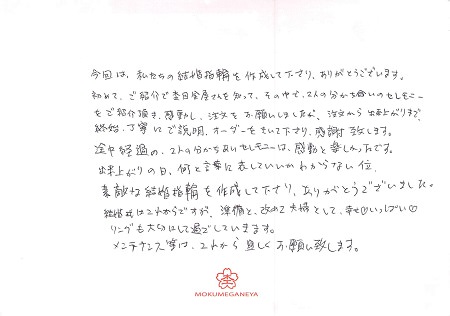 今回は、私たちの結婚指輪を作成して下さり、ありがとうございます。
初めて、ご紹介で杢目金屋さんを知って、その中で、2人の分かち合いのセレモニー
をご紹介頂き、感動し、注文をお願いしましたが、注文から出来上がりまで、
終始、丁寧にご説明、オーダーをきいて下さり、感謝致します。
途中経過の、2人の分かちあいセレモニーは、感動と楽しかったです。
出来上がりの日、何と言葉に表していいかわからない位、
素敵な結婚指輪を作成して下さり、ありがとうございました。
結婚式はこれからですが、準備と、改めて夫婦として、幸せ♡いっぱい♡
リングも大切にして過ごしていきます。
メンテナンス等は、これから宜しくお願い致します。
MOKUMEGANEYA